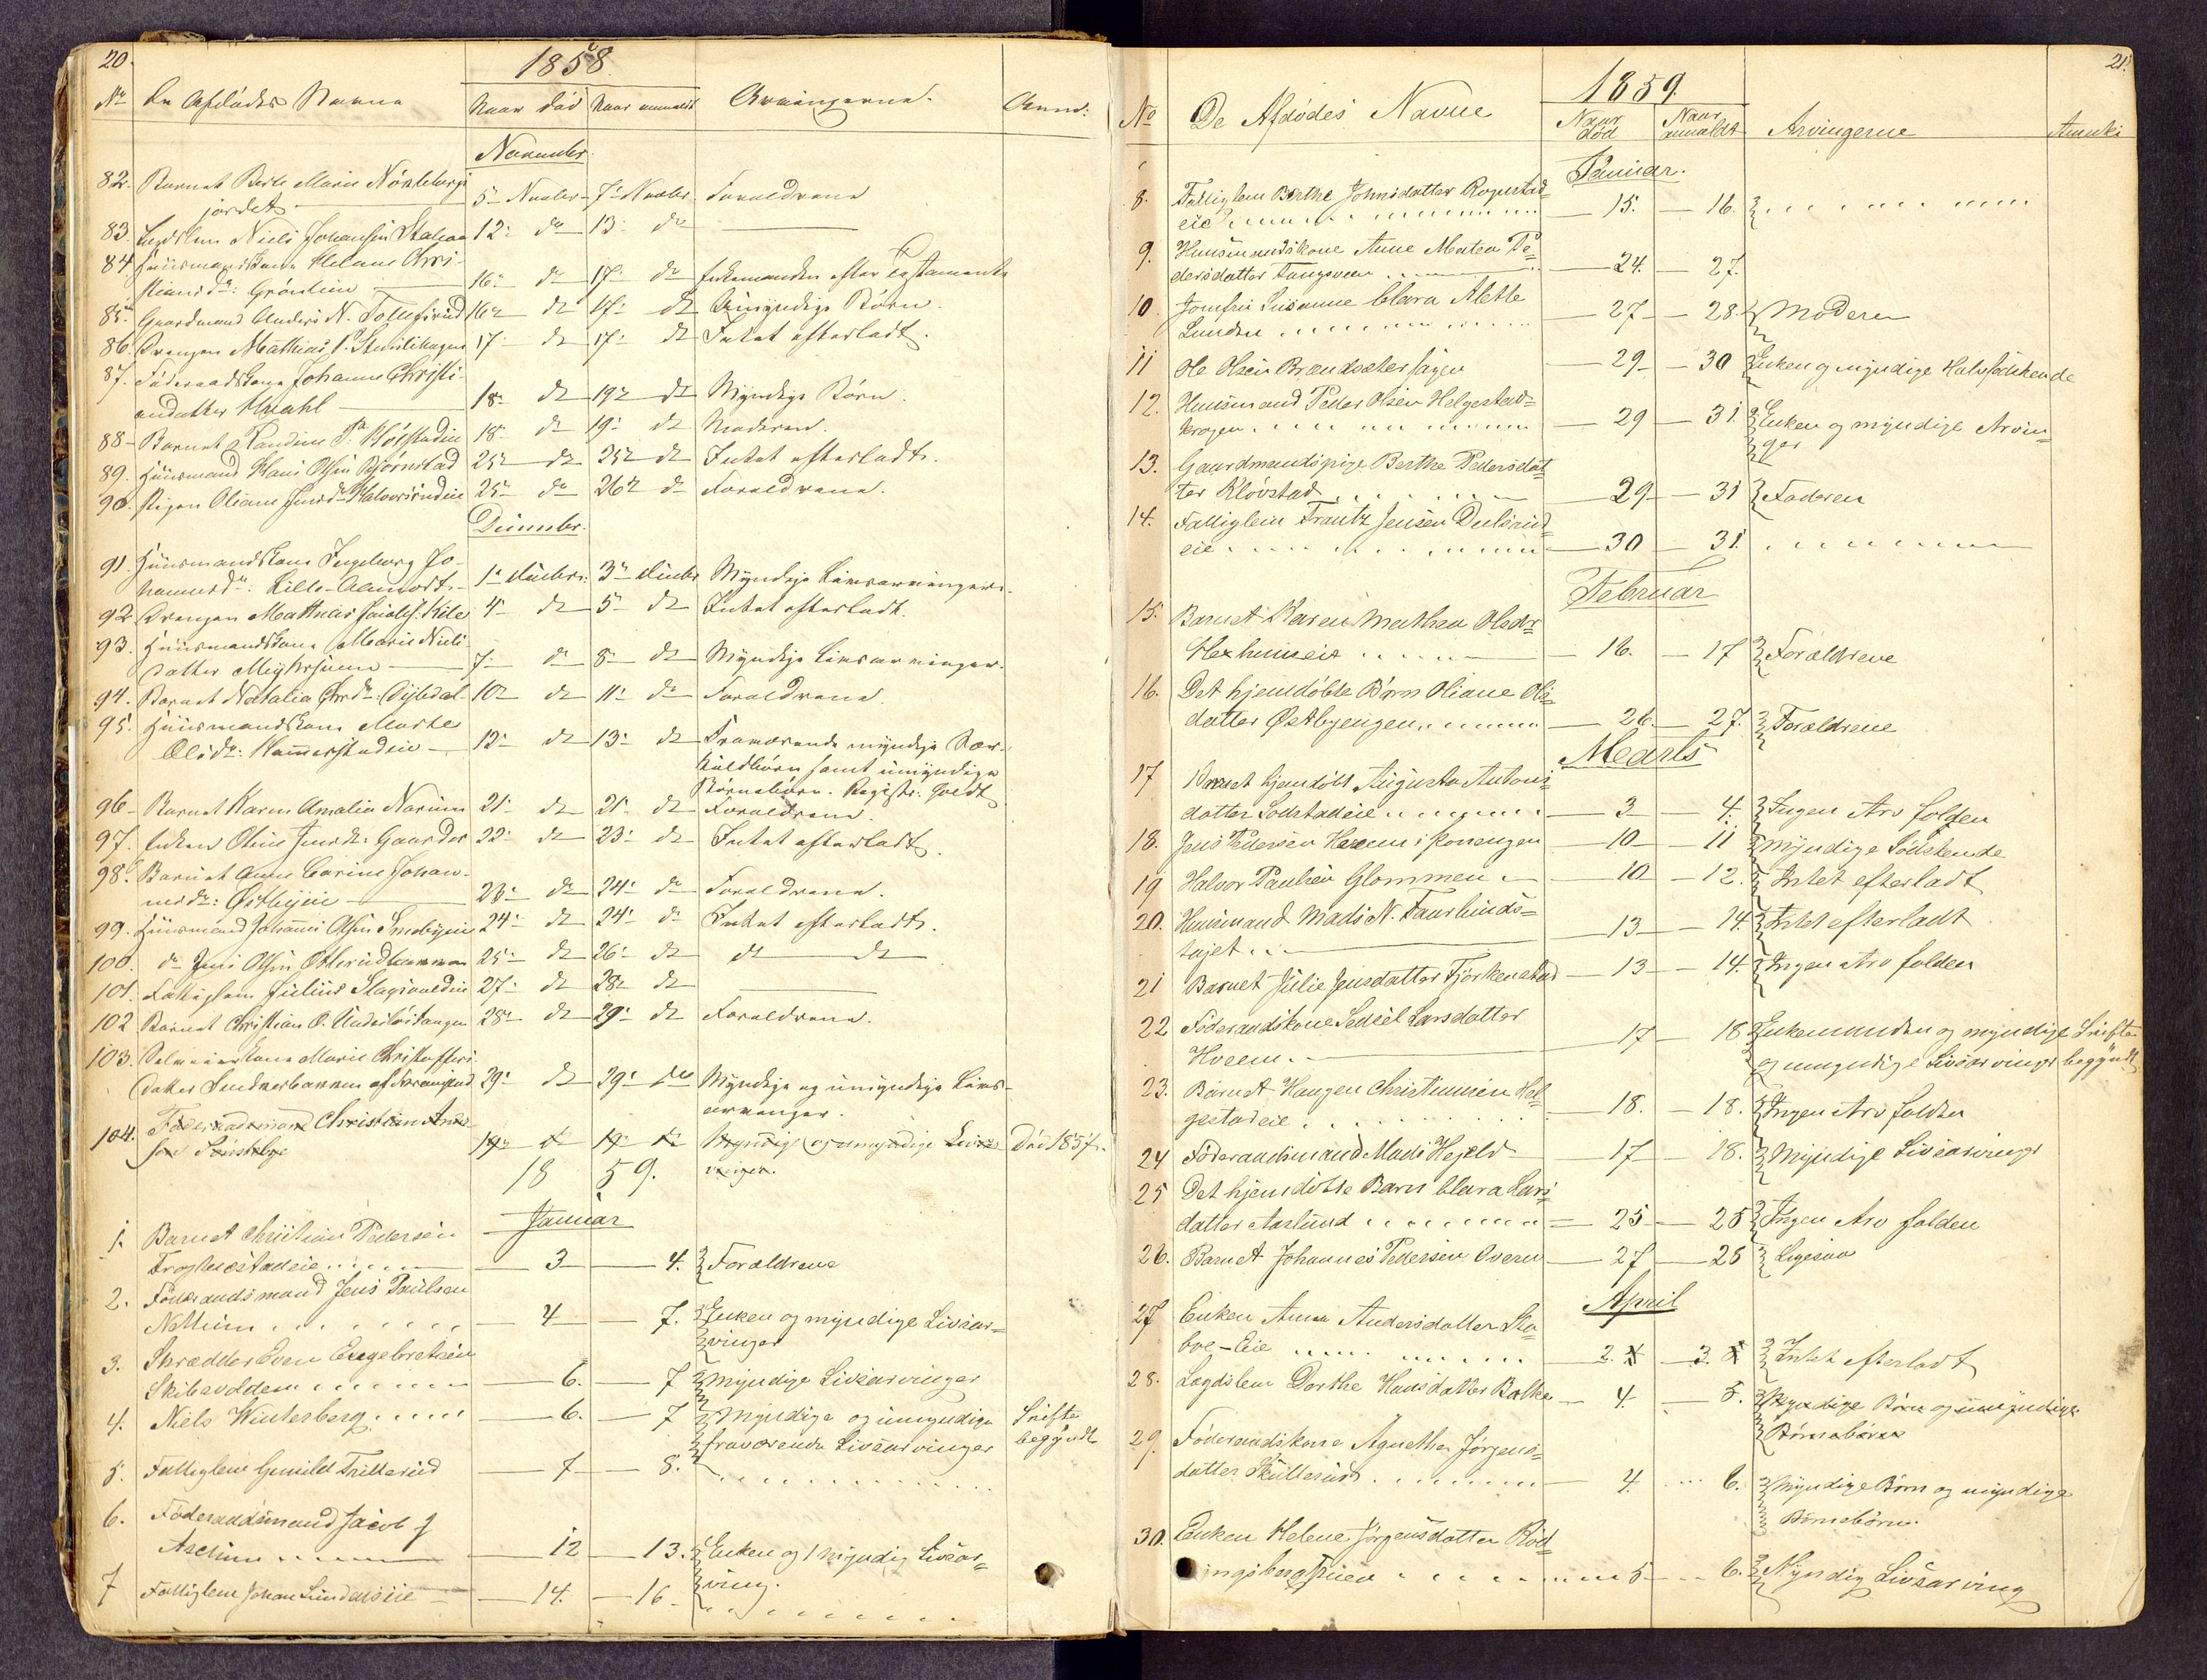 20.
1858.
No De Afdödes Navne Naar död Naar anmeldt Arvingerne. Anm:
November.
82. Barnet Berte Marie Nöklebergs
jordet 5 Novbr 7 Novbr Forældrene
83. Lægdslem Niels Johansen 12 do 13 do
84 Huusmandskone Helene Chri-
stiansdr: Gröntien 16 do 17 do Enkemanden efter Testamente
85. Gaardmand Anders N. Tollefsrud 16 do 17 do Umyndige Börn.
86. Drengen Mathias P. 17 do 17 do Intet efterladt.
87. Föderaadskone Johanne Christi-
andatter Kraakl 18 do 19 do Myndige Börn.
88 Barnet Kölstadeie 18 do 19 do Moderen.
89. Huusmand Hans Olsen Björnstad 25 do 25 do Intet efterladt.
90. Pigen Oliane Halvorsrudeie 25 do 26 do Forældrene.
Decembr.
91. Huusmandskone Ingeborg Jo-
hannesdr: Lille- 1 decbr. 3 decbr Myndige Livsarvinger.
92 Drengen Mathias Kile 4 do 5 do Intet efterladt.
93. Huusmandskone Marie Niels
datter 7 do 8 do Myndige Livsarvinger.
94. Barnet Natalia Chrdr: Dybdal 10 do 11 do Forældrene.
95. Huusmandskone Marthe
Olsdr: Hammerstadeie 12 do 13 do Fraværende myndige Sær-
kuldbörn samt umyndige
Börnebörn. Registr. holdt
96 Barnet Karen Amalie Narum 21 do 21 do Forældrene.
97. Enken Gaarder 22 do 23 do Intet efterladt.
98. Barnet Anne Carine Johan-
nesdr: Östbyeie 23 do 24 do Forældrene.
99. Huusmand Johannes Olsen Smebyeie 24 do 24 do Intet efterladt.
100. do Jens Olsen 25 do 26 do do do
101. Fattiglem Julius 27 do 28 do
102 Barnet Christian O. 28 do 29 do Forældrene.
103. Selveierkone Marie Christoffers
datter 29 do 29 do Myndige og umyndige Livs-
arvinger.
104. Föderaadsmand Christian Ander
sen 14 do 14 do Myndige og umyndige Livsar
vinger. Död 1857.
18 59.
Januar
1. Barnet Christian Pedersen
3 4. Forældrene
2. Föderaadsmand Jens Paulsen
4 7. Enken og myndige Livsar=
vinger
3. Skrædder Even Engebretsen
Skibsvolden 6. 7 Myndige Livsarvinger
4. Niels Winterberg 6. 7 Myndige og umyndige Skifte
fraværende Livsarvinger begyndt
5. Fattiglem Gunild Trillerud 7 8.
6. Föderaadsmand Jacob J
Aschim 12 13. Enken og 1 myndig Livsar=
ving.
7 Fattiglem Johan Lundeieie 14. 16
21.
1859.
No De Afdödes Navne Naar död Naar anmeldt Arvingerne Anmk:
Januar.
8. Fattiglem Berthe Johnsdatter Rognstad
eie 15. 16.
9. Huusmandskone Anne Marten Pe=
dersdatter Tangsveen 24. 27.
10. Jomfru Susanne Clara Alette
Lunden 27 28. Moderen
11 Ole Olsen Brandsæter 29 30 Enken og myndige Halvsödskende
12. Huusmand Peder Olsen Helgestad=
krogen 29 31. Enken og myndige Arvin=
ger
13. Gaardmandspige Berthe Pedersdat=
ter Klövstad 29 31 Faderen
14. Fattiglem Frantz Jensen Dulsrud
eie 30 31.
Februar
15. Barnet Karen Mathea Olsdr
Hexhuuseie 16. 17 Forældrene
16. Det hjemdöbte Barn Oliane Ols=
datter Østbyengen 26. 27. Forældrene
Marts
17 Barnet hjemdöbt Augusta Antons
datter Sodstadeie 3 4. Ingen Arv falden
18. Jens Pedersen Hexem i Porrengen 10 11 Myndige Södskende
19 Halvor Paulsen Glommen 10 12. Intet efterladt
20. Huusmand Mads N. Faurlunds=
13 14. Intet efterladt
21 Barnet Julie Jensdatter Fjörkenstad 13 14. Ingen Arv falden
22 Föderaadskone Sedsel Larsdatter
Hveem 17 18 Enkemanden og myndige Skifte
og umyndige Livsarvinger begyndt
23. Barnet Haagen Christiansen Hel=
gestadeie 18. 18. Ingen Arv falden
24 Föderaadsmand Mads Hejeld 17 18. Myndige Livsarvinger
25 Det hjemdöbte Barn Clara Lars
datter Aaslund 25 25 Ingen Arv falden
26. Barnet Johannes Pedersen Overn 27 28 Ligesaa
April
27 Enken Anna Andersdatter Sta=
bye-Eie 2. 3. Intet efterladt
28. Lægdslem Dorthe Hansdatter Balke 4 5. Myndige Börn og umyndige
Börnebörn
29. Föderaadskone Agnethe Jörgens=
datter Skullerud 4 6. Myndige Börn og myndige
Börnebörn.
30. Enken Helene Jörgensdatter Röd=
ingsbergseien 5 6. Myndig Livsarving